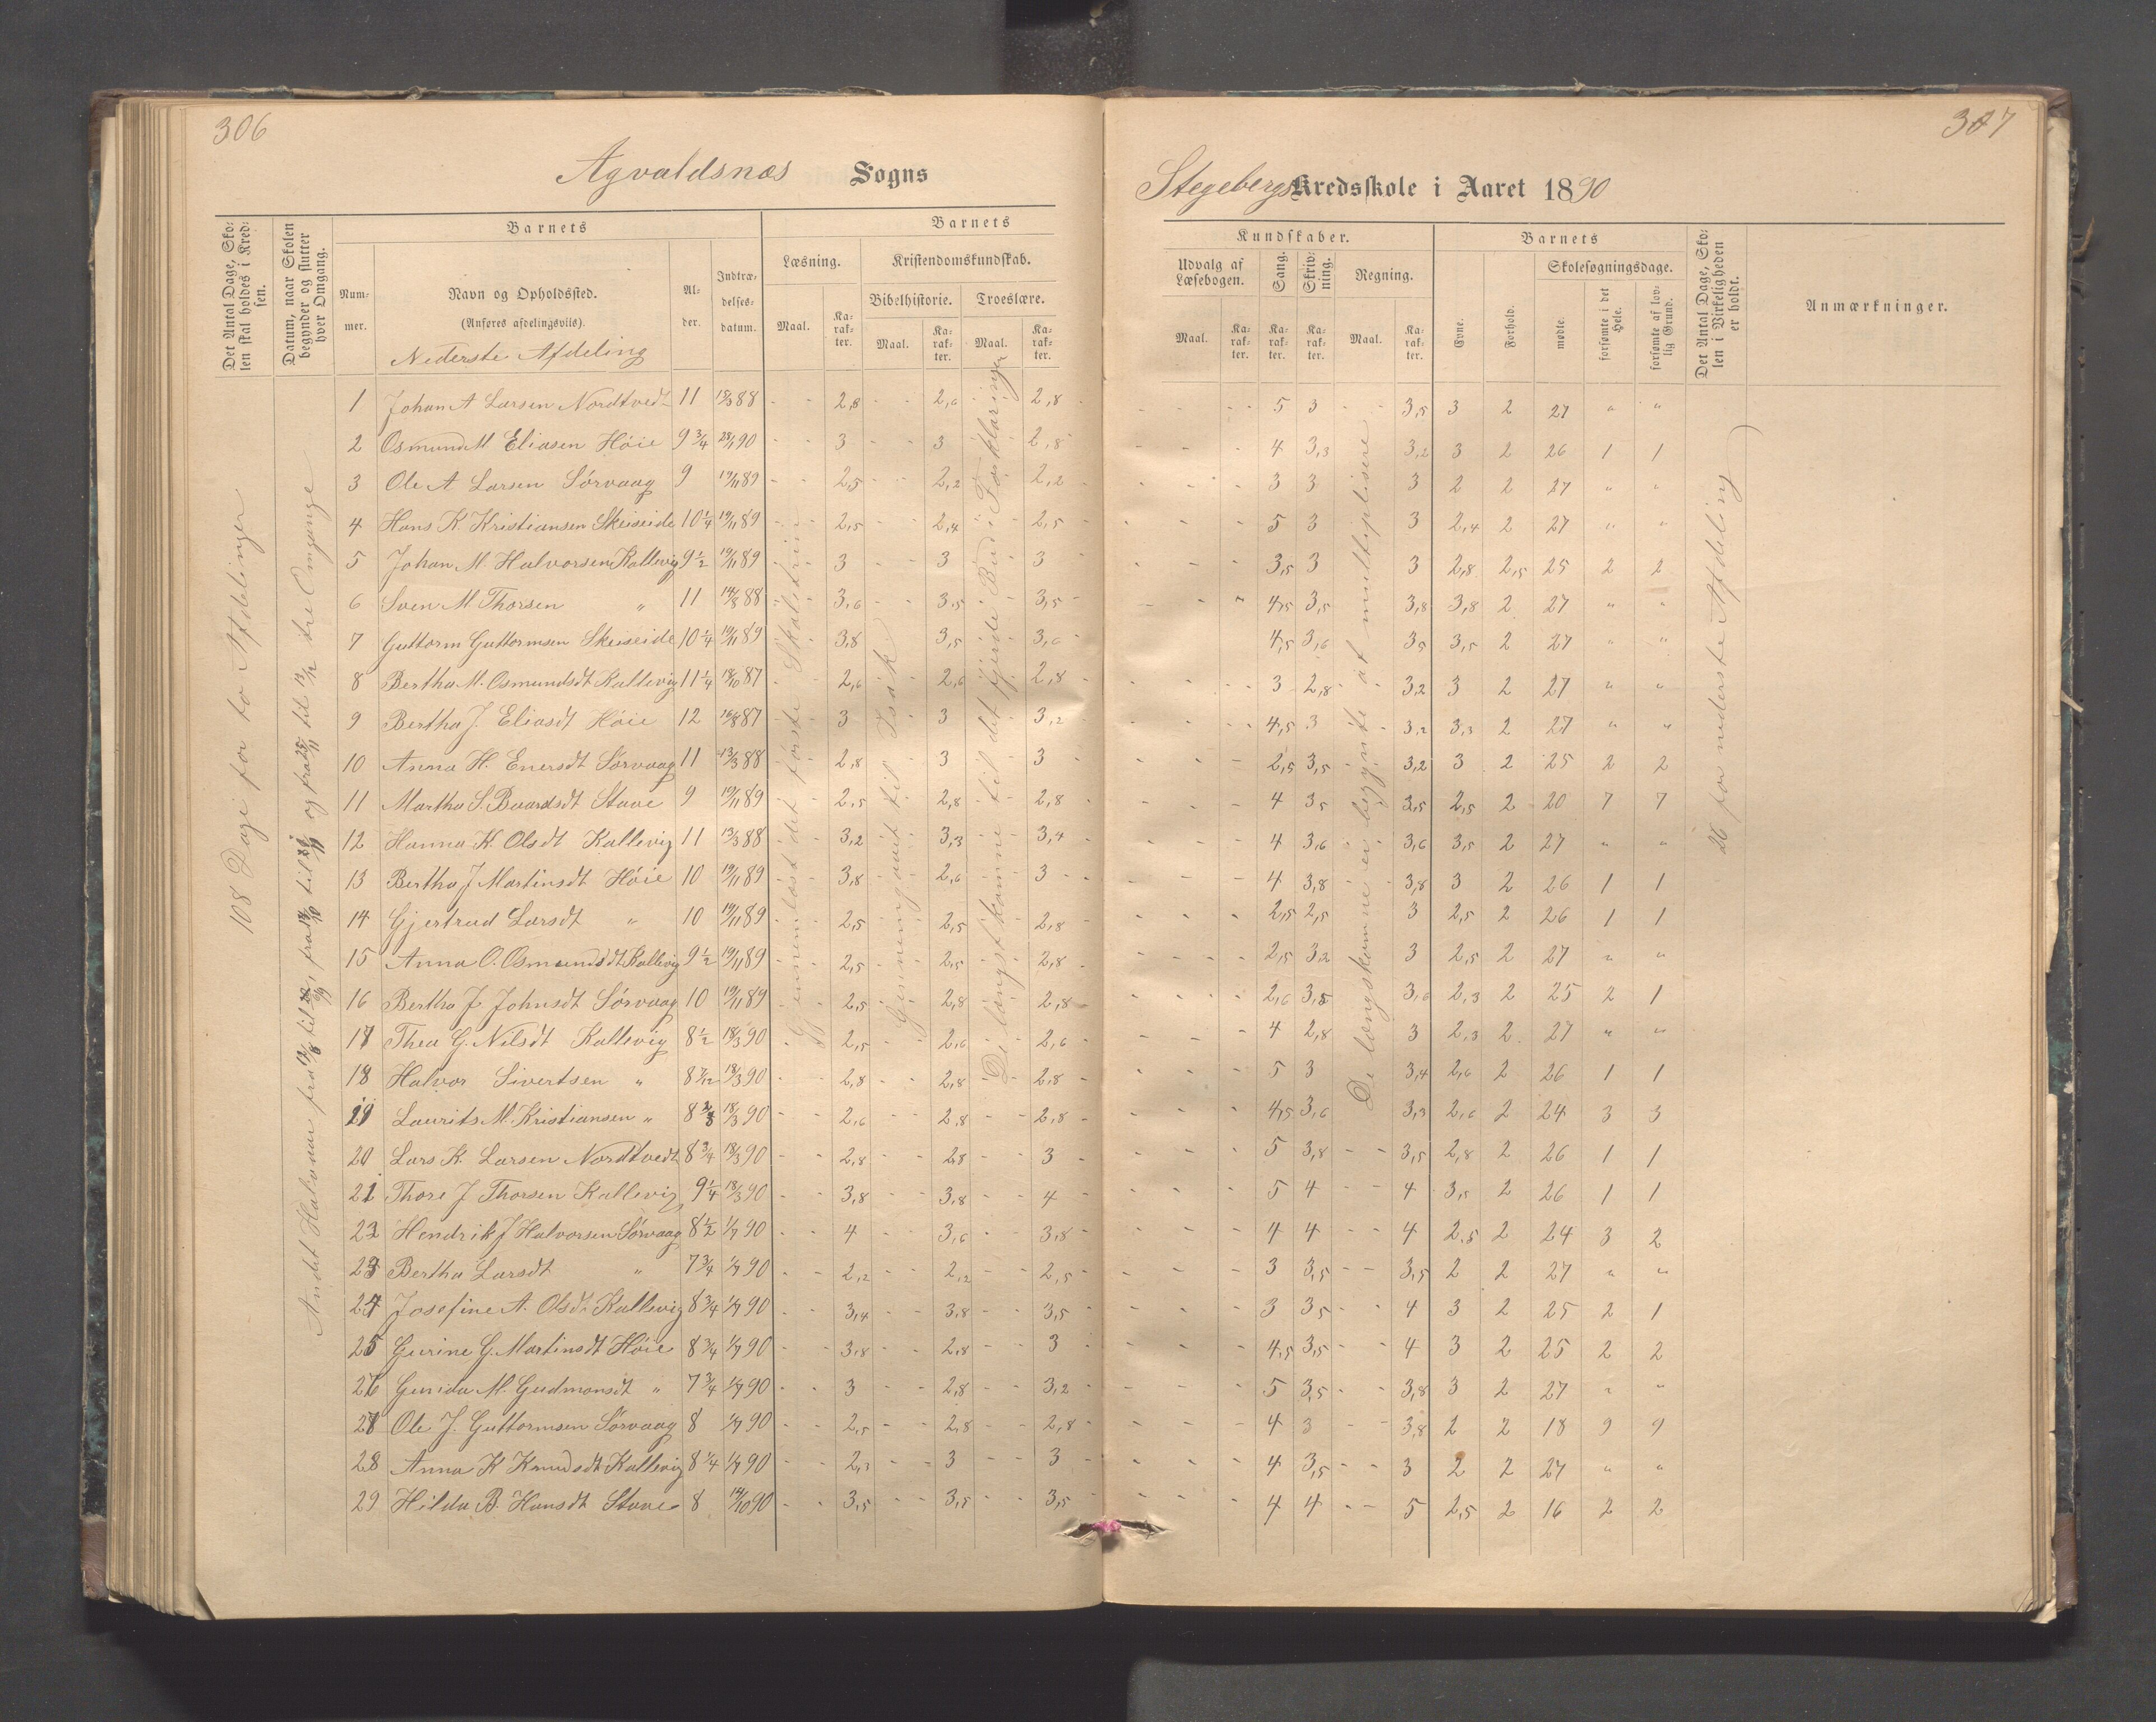 306
307
Agvaldsnæs Sogns
Stegebergs Kredsskole i Aaret 1890
Det Antal Dage, Skolen skal holdes i Kredsen.
Datum, naar Skolen begynder og slutter hver Omgang.
Barnets
Nummer.
Navn og Opholdssted.
(Anføres afdelingsviis).
Nederste Afdeling
Alder.
Indtrædelsesdatum.
Barnets
Læsning.
Kristendomskundskab.
Bibelhistorie.
Troeslære.
Maal.
Karakter.
Maal.
Karakter.
Maal.
Karakter.
Kundskaber.
Udvalg af Læsebogen.
Sang.
Skrivning.
Regning.
Maal.
Karakter.
Karakter.
Karakter.
Maal.
Karakter.
Barnets
Evne.
Forhold.
Skolesøgningsdage.
mødte.
forsømte i det Hele.
forsømte af lovlig Grund.
Det Antal Dage, Skolen i Virkeligheden er holdt.
Anmærkninger.
108 Dage for to Afdelinger
Andet Halvaar fra
Gjennemlæst det første Skoletrin
Gjesning avit til Isak
De længstkomne til det fjerde Bud i Forklaringen
De længskomne er begyndt at multiplisere
26 for nederste Afdeling
1 Johan A Larsen Nordtvedt 11 13/3 88 - - 2,8 - - 2,6 - 2,8 - - - - 5 3 - - 3,5 3 2 27 " "
2 Osmund M Eliasen Høie 9 3/4 28/1 90 - - 3 - - 3 2,8 - - - 4 3,3 3,2 3 2 26 1 1
3 Ole A Larsen Sørvaag 9 19/11 89 - - 2,5 - - 2,2 2,2 - - - 3 3 3 2 2 27 " "
4 Hans K. Kristiansen Skeiseide 10 1/4 19/11 89 - - 2,5 2,4 2,5 - - - 5 3 3 2,4 2 27 " "
5 Johan M. Halvorsen Kallevig 9 1/2 19/11 89 3 - - 3 3 - - - 3,5 3 3 2,8 2,5 25 2 2
6 Sven M Thorsen " 11 14/3 88 3,6 3,5 3,5 - - " 4,5 3,5 3,8 3,8 2 27 " "
7 Guttorm Guttormsen Skeiseide 10 1/4 19/11 89 3,8 3,5 3,6 4,5 3,6 3,5 3,5 2 27 " "
8 Bertha M. Osmundsdt Kallevig 11 1/4 18/10 87 2,6 2,6 2,8 - - - 3 2,8 3,2 3 2 27 " "
9 Bertha J. Eliasdt Høie 12 16/8 87 3 3 3,2 - - - 4,5 3 3,2 3,3 2 27 " "
10 Anna H. Enersdt Sørvaag 11 13/3 88 2,8 3 3 - - - 2,5 3,5 3,2 3 2 25 2 2
11 Martha S. Baardsdt Stave 9 19/11 89 2,5 2,8 2,8 - - - 4 3,5 3,5 2,5 2 20 7 7
12 Hanna K. Olsdt Kallevig 11 13/3 88 3,2 3,3 3,4 - - - 4 3,6 3,6 3,5 2 27 " "
13 Bertha J Martinsdt Høie 10 19/11 89 3,8 2,6 3 - - - 4 3,8 3,8 3 2 26 1 1
14 Gjertrud Larsdt " 10 19/11 89 2,5 2,5 2,8 - - - 2,5 2,5 3 2,5 2 26 1 1
15 Anna O. Osmundsdt Kallevig 9 1/2 19/11 89 2,5 2,5 2,8 - - - 2,5 3,2 3 2,5 2 27 " "
16 Bertha J. Johnsdt Sørvaag 10 19/11 89 2,5 2,8 2,8 - - - 2,6 3,5 3,6 2,3 2 25 2 1
17 Thea G. Nilsdt Kallevig 8 1/2 18/3 90 2,5 2,6 2,6 - - - 4 2,8 3 2,3 2 27 " "
18 Halvor Sivertsen " 8 7/12 18/3 90 2,8 2,8 2,8 - - - 5 3 3,4 2,6 2 26 1 1
19 Laurits M. Kristiansen " 8 2/3 18/3 90 2,6 2,8 2,8 - - - 4,5 3,6 3,3 2,6 2 24 3 3
20 Lars K. Larsen Nordtvedt 8 3/4 18/3 90 2,8 2,8 3 - - - 5 3,8 3,5 2,8 2 26 1 1
21 Thore J Thorsen Kallevig 9 1/4 18/3 90 3,8 3,8 4 - - - 5 4 4 3,5 2 26 1 1
22 Hendrik J Halvorsen Sørvaag 8 1/2 1/7 90 4 3,6 3,8 - - - 4 4 4 2,5 2 24 3 2
23 Bertha Larsdt " 7 3/4 1/7 90 2,2 2,2 2,5 - - - 3 3,5 3,5 2 2 27 " "
24 Josefine A. Olsdt Kallevig 8 3/4 1/7 90 3,4 3,8 3,5 - - - 3 3,5 4 3 2 25 2 1
25 Gurine G. Martinsdt Høie 8 3/4 1/7 90 3,8 2,8 3 - - - 4,5 3,5 4 3 2 25 2 2
26 Gurida M. Gudmonsdt " 7 3/4 1/7 90 3 2,8 3,2 - - - 5 3,5 3,8 3 2 27 " "
27 Ole J. Guttormsen Sørvaag 8 1/7 90 2,5 2,8 2,8 - - - 4 3 3,8 2 2 18 9 9
28 Anna K Knudsdt Kallevig 8 1/4 1/7 90 2,3 3 3 - - - 4 3,5 3 2 2 27 " "
29 Hilda B. Hansdt Stave 8 14/10 90 3,5 3,5 3,5 - - - 4 4 5 2,5 2 16 2 2